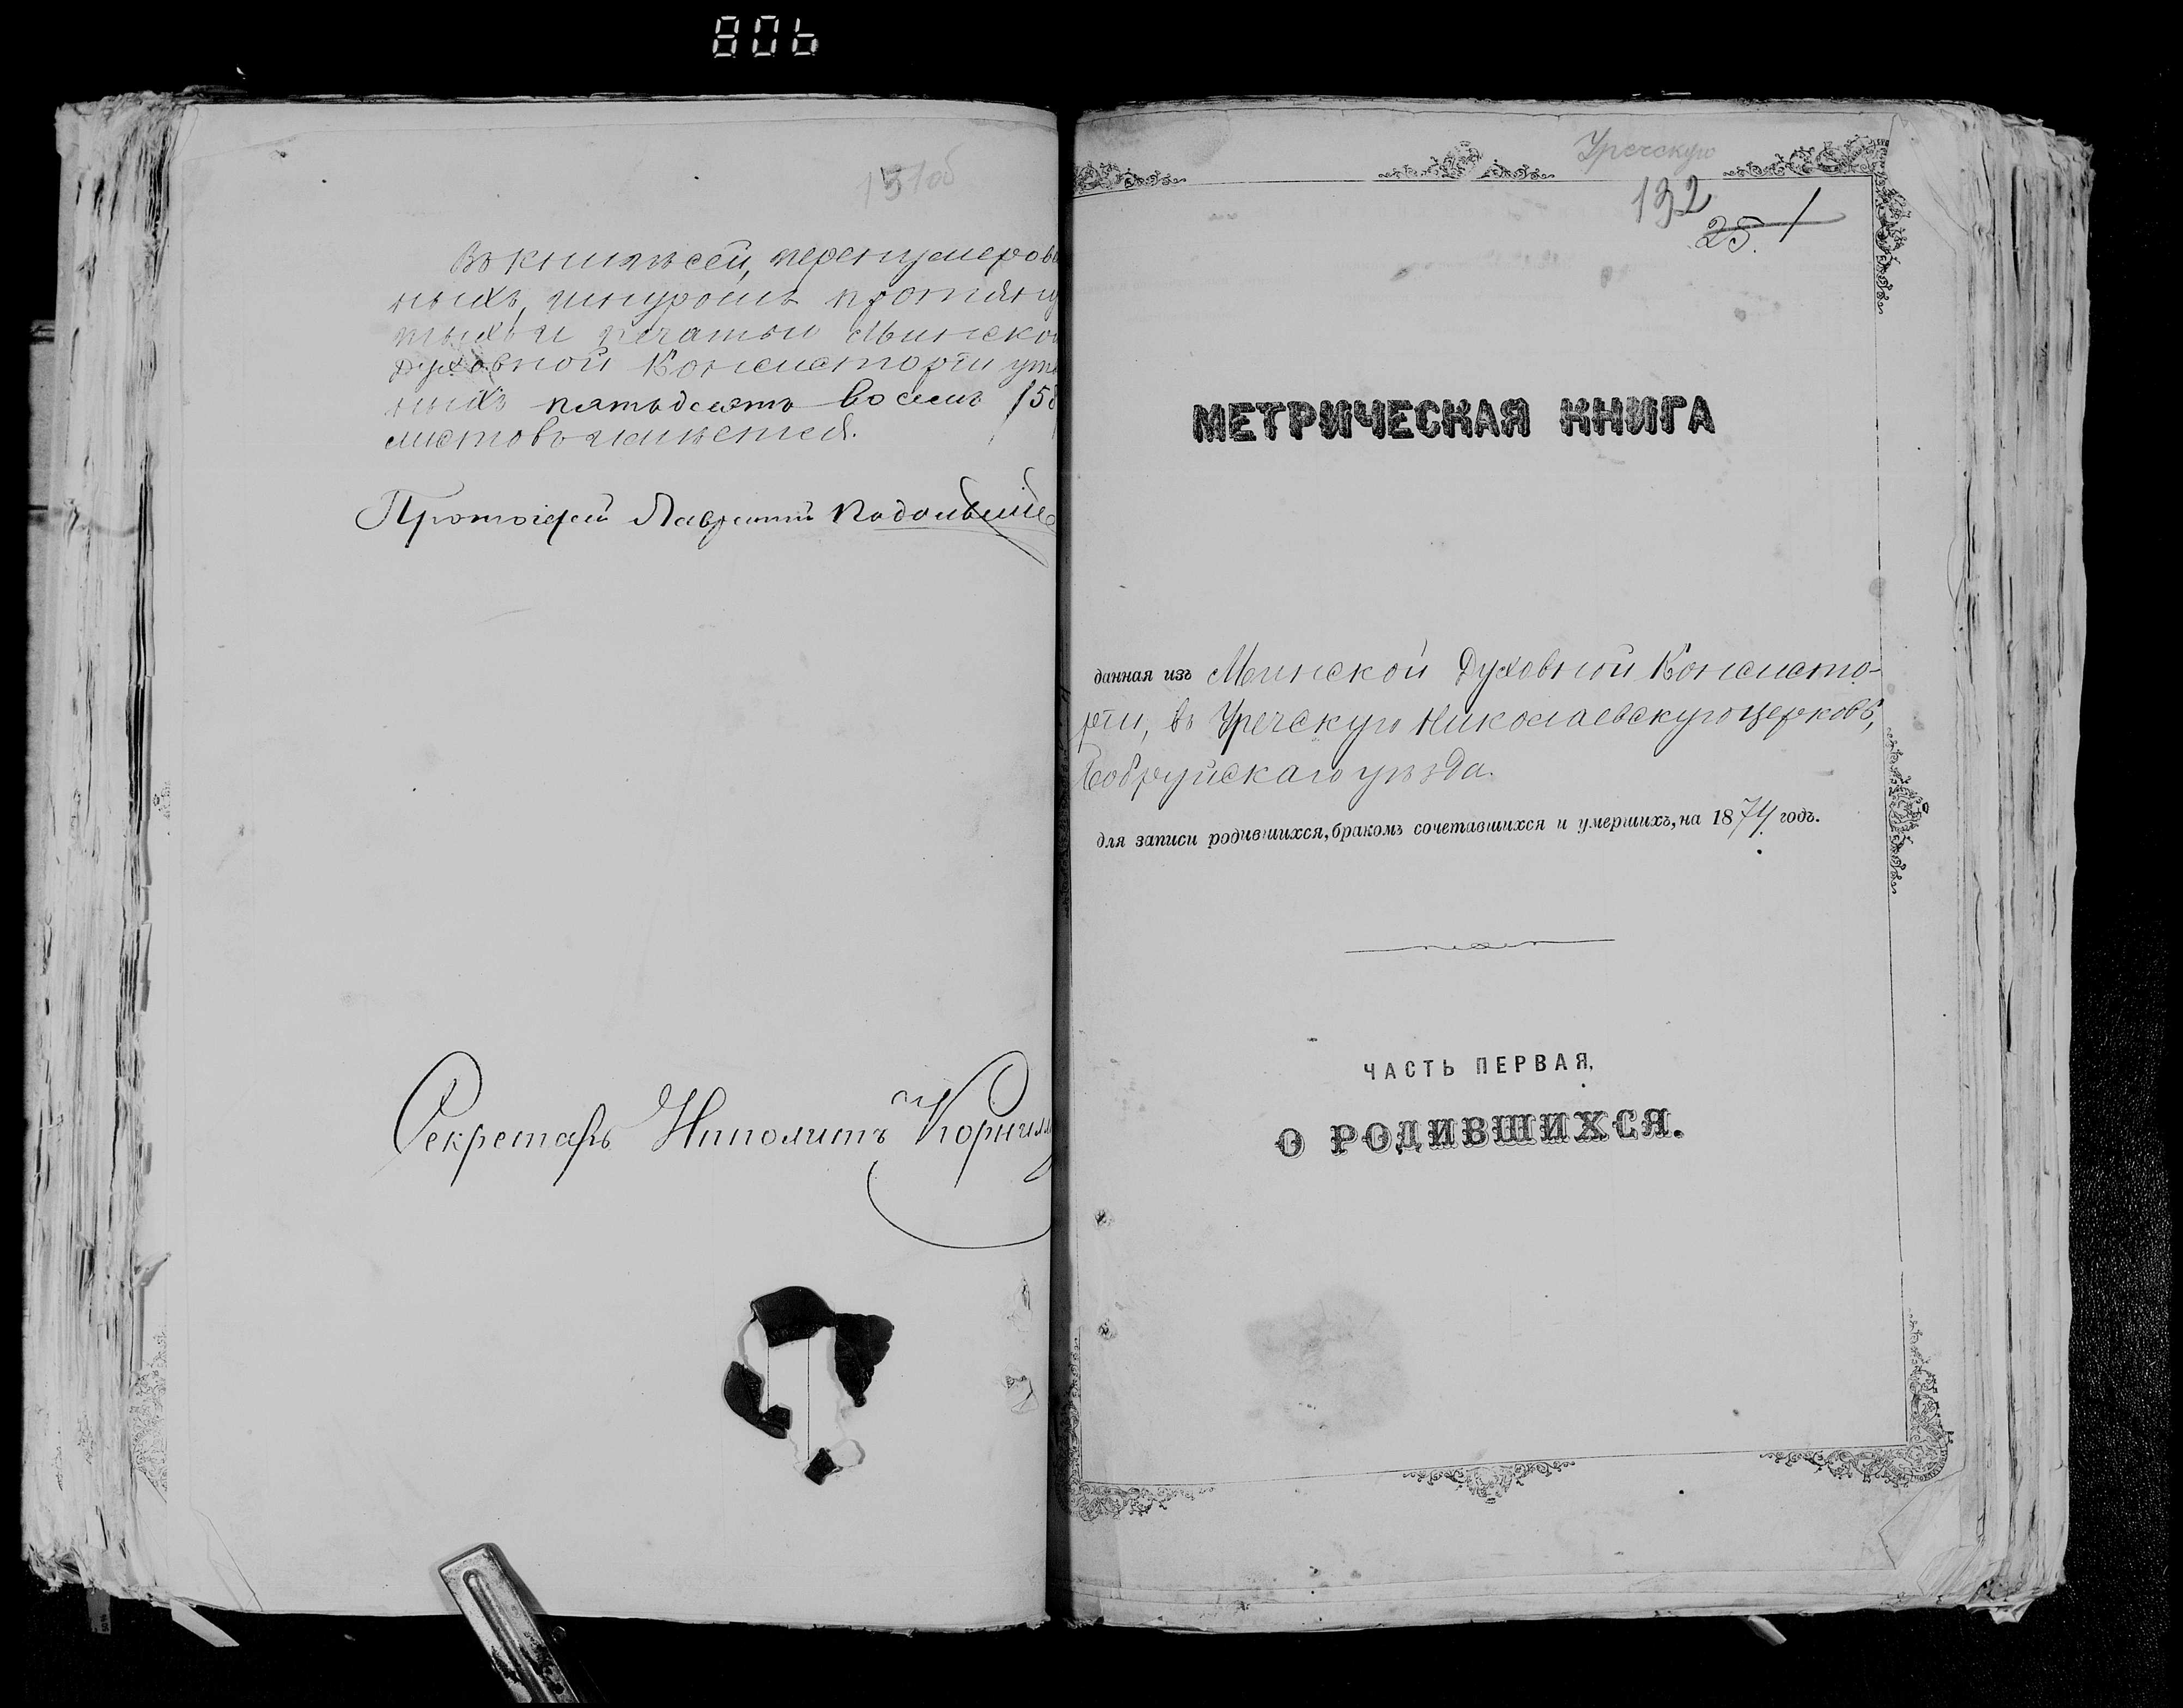 806
131об
Въ книгѣ сей, перенумерова
ныхъ, шнуромъ протяну
тыхъ и печатью Минской
Духовной Консисторіи утв
ныхъ пятьдесятъ восемь /58
листовъ имѣется.
Протоіерей Лаврентій
Секретарь Иполитъ
Уречскую
132
25. 1
МЕТРИЧЕСКАЯ КНИГА
данная изъ Минской Духовной Консисто-
ріи, въ Уречскую Николаевскую церковь,
Бобруйскаго уѣзда.
для записи родившихся, бракомъ сочетавшихся и умершихъ, на 1874 годъ.
ЧАСТЬ ПЕРВАЯ,
О РОДИВШИХСЯ.